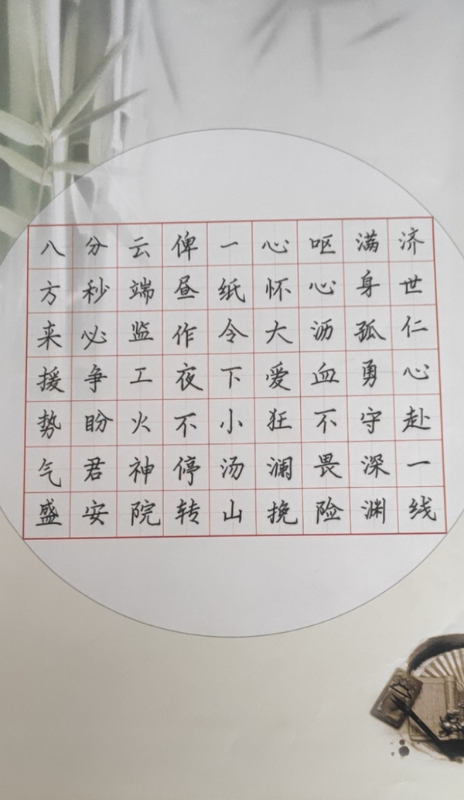 济世仁心赴一线
满身孤勇守深渊
呕心沥血不畏险
心怀大爱狂澜挽
一纸令下小汤山
俾昼作夜不停转
云端监工火神院
分秒必争盼君安
八方来援势气盛